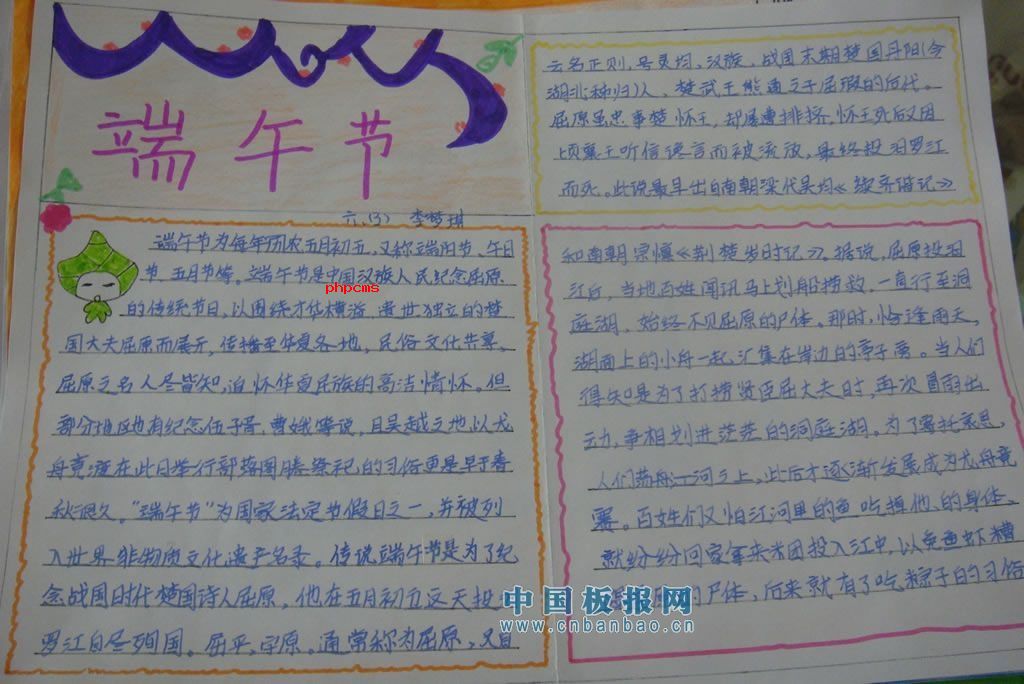 端午节
六、(3) 李梦琪
端午节为每年历农五月初五,又称端阳节、午日
节、五月节等。端午节是中国汉族人民纪念屈原
phpcms
的传统节日,以围绕才华横溢、遗世独立的楚
国大夫屈原而展开,传播至华夏各地,民俗文化共享,
屈原之名人尽皆知,追怀华夏民族的高洁情怀。但
部分地区也有纪念伍子胥、曹娥等说,且吴越之地以龙
舟竞渡在此日举行部落图腾祭祀的习俗更是早于春
秋很久。“端午节”为国家法定节假日之一,并被列
入世界非物质文化遗产名录。传说端午节是为了纪
念战国时代楚国诗人屈原,他在五月初五这天投
罗江自尽殉国。屈平,字原。通常称为屈原,又自
云名正则,号灵均,汉族,战国末期楚国丹阳(今
湖北秭归)人,楚武王熊通之子屈瑕的后代。
屈原虽忠事楚怀王,却屡遭排挤,怀王死后又因
顷襄王听信谗言而被流放,最终投汨罗江
而死。此说最早出自南朝梁代吴均《续齐谐记》
和南朝宗懔《荆楚岁时记》。据说,屈原投汨
江后,当地百姓闻讯马上划船捞救,一直行至洞
庭湖,始终不见屈原的尸体。那时,恰逢雨天,
湖面上的小舟一起汇集在岸边的亭子旁。当人们
得知是为了打捞贤臣屈大夫时,再次冒雨出
动,争相划进茫茫的洞庭湖。为了寄托哀思,
人们荡舟江河之上,此后才逐渐发展成为龙舟竞
赛。百姓们又怕江河里的鱼吃掉他的身体,
就纷纷回家拿来米团投入江中,以免鱼虾糟
的尸体,后来就有了吃粽子的习俗
中国板报网
www.cnbanbao.cn